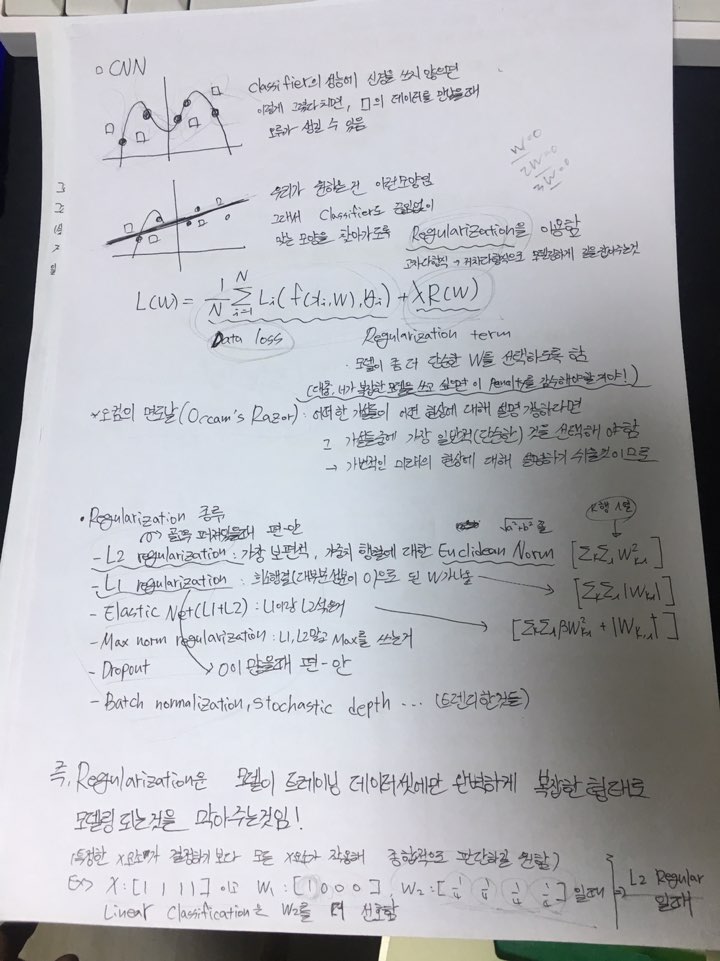 □ CNN
Classifier의 성능에 신경을 쓰지 않으면
이렇게 그렸다 치면, □의 데이터를 만났을때
오류가 생길 수 있음
W=0
2W=0
3W=0
우리가 원하는건 이런모양임
그래서 Classifier도 끊임없이
맞는 모양을 찾아가도록 Regularization을 이용함
고차다항식 → 저차다항식으로 모델링하게 길을잡아주는것
L(W) = 1/N Σ_{i=1}^{N} Li(f(xi,W),yi) + λR(W)
Data loss
Regularization term
모델이 좀 더 단순한 W를 선택하도록 함
(대충, 너가 복잡한 모델을 쓰고 싶으면 이 Penalty를 감수해야할거야!)
*오컴의 면도날(Occam's Razor): 어떠한 가설들이 어떤 현상에 대해 설명 가능하다면
그 가설들중에 가장 일반적(단순한) 것을 선택해야함
→ 가변적인 미래의 현상에 대해 설명하기 쉬울것이므로
• Regularization 종류
골고루 퍼져있을때 편-안
√a²+b² 꼴
K행 l열
- L2 regularization : 가장 보편적, 가중치 행렬에 대한 Euclidean Norm [ΣkΣl W²k,l]
- L1 regularization : 희소행렬(대부분성분이 0)으로 된 W가나올 → [ΣkΣl |Wk,l|]
- Elastic Net(L1+L2) : L1이랑 L2섞은거 → [ΣkΣl βW²k,l + |Wk,l|]
- Max norm regularization : L1, L2말고 Max를 쓰는거
- Dropout
→ 0이 많을때 편-안
- Batch normalization, Stochastic depth ... (트렌디한것들)
즉, Regularization은 모델이 트레이닝 데이터셋에만 완벽하게 복잡한 형태로
모델링 되는것을 막아주는것임!
(특정한 X요소가 결정하기보다 모든 X요소가 작용해 종합적으로 판단하길 원함)
Ex> X:[1 1 1 1] 이고 W1:[1 0 0 0], W2:[1/4 1/4 1/4 1/4] 일때 → L2 Regular
Linear Classification은 W2를 더 선호함 일때